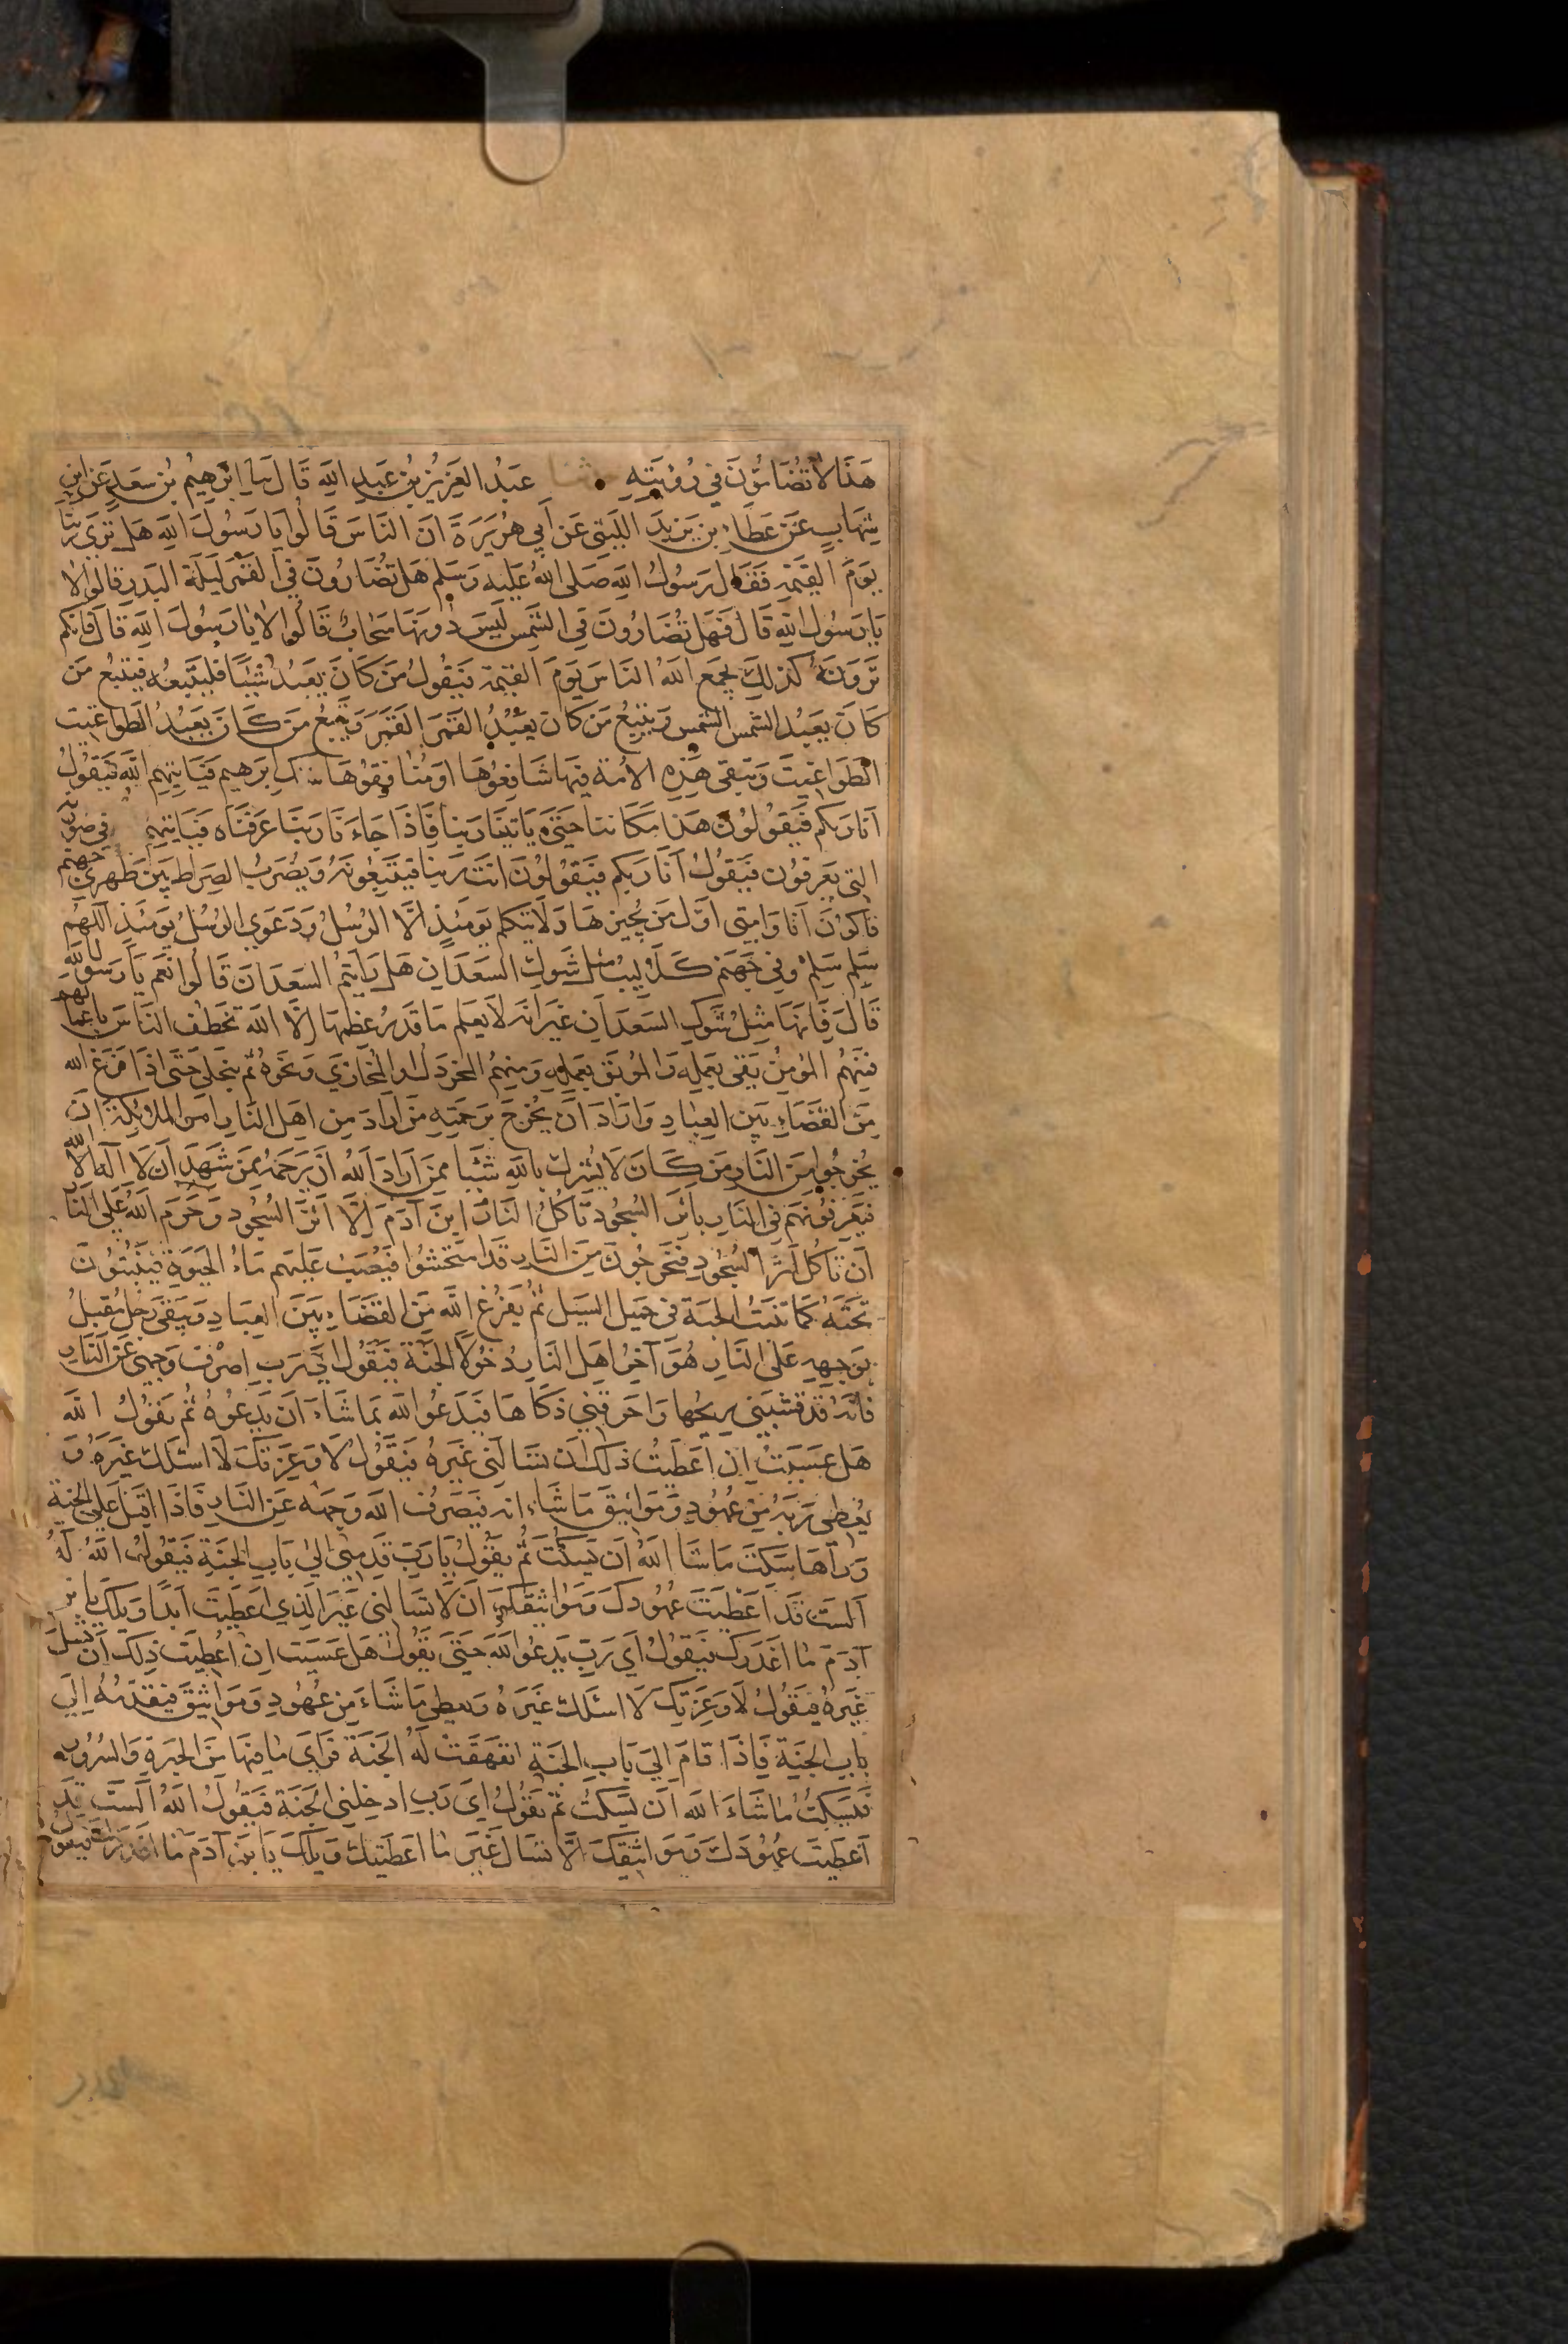 هَذَا لَا تُضَامُّوْنَ فِي رُؤْيَتِهِ ثنا عَبْدُ العَزِيْزِ بْنُ عَبْدِ اللهِ قَالَ نَا اِبْرٰهِيْمُ بْنُ سَعْدٍ عَنِ ابْنِ
شِهَابٍ عَنْ عَطَاءِ بْنِ يَزِيْدَ اللَّيْثِي عَنْ اَبِي هُرَيْرَةَ اَنَّ النَّاسَ قَالُوا يَا رَسُوْلَ اللهِ هَلْ نَرَى رَبَّنَا
يَوْمَ القِيٰمَةِ فَقَالَ رَسُوْلُ اللهِ صَلَى اللهُ عَلَيْهِ وَسَلَم هَلْ تُضَارُوْنَ فِي القَمَرِ لَيْلَةَ البَدْرِ قَالُوا لَا
يَا رَسُوْلَ اللهِ قَالَ فَهَلْ تُضَارُوْنَ فِي الشَّمْسِ لَيْسَ دُوْنَهَا سَحَابٌ قَالُوا لَا يَا رَسُوْلَ اللهِ قَالَ فَاِنَّكُمْ
تَرَوْنَهُ كَذٰلِكَ يَجْمَعُ اللهُ النَّاسَ يَوْمَ القِيٰمَةِ فَيَقُوْلُ مَنْ كَانَ يَعْبُدُ شَيْئًا فَلْيَتَّبِعْهُ فَيَتْبَعُ مَنْ
كَانَ يَعْبُدُ الشَّمْسَ الشَّمْسَ وَيَتْبَعُ مَنْ كَانَ يَعْبُدُ القَمَرَ القَمَرَ وَيَتْبَعُ مَنْ كَانَ يَعْبُدُ الطَّوَاغِيْتَ
الطَّوَاغِيْتَ وَتَبْقَى هٰذِهِ الاُمَّة فِيْهَا شَافِعُوْهَا اَوْ مُنَافِقُوْهَا شك اِبْرٰهِيْم فَيَاتِيْهِمُ اللهُ فَيَقُوْلُ
اَنَا رَبُّكُمْ فَيَقُوْلُوْنَ هٰذَا مَكَانُنَا حَتَّى يَاتِيَنَا رَبُّنَا فَاِذَا جَاءَنَا رَبُّنَا عَرَفْنَاه فَيَاتِيْهِمُ فِي صُوْرَتِهِ
الَّتِي يَعْرِفُوْنَ فَيَقُوْلُ اَنَا رَبُّكُمْ فَيَقُوْلُوْنَ اَنْتَ رَبُّنَا فَيَتَّبِعُوْنَهُ وَيُضْرَبُ الصِّرَاطُ بَيْنَ ظَهْرَيْ جَهَنَّمَ
فَاَكُوْنُ اَنَا وَاُمَّتِي اَوَّلَ مَنْ يُجِيْزُهَا وَلَا يَتَكَلَّمُ يَوْمَئِذٍ اِلَّا الرُّسُلُ وَدَعْوَى الرُّسُلِ يَوْمَئِذٍ اللّٰهُمَّ
سَلِّم سَلِّم وَفِي جَهَنَّمَ كَلَالِيْبُ مِثْلُ شَوْكِ السَّعْدَانِ هَلْ رَاَيْتُمُ السَّعْدَانَ قَالُوا نَعَمْ يَا رَسُوْلَ اللهِ
قَالَ فَاِنَّهَا مِثْلُ شَوْكِ السَّعْدَانِ غَيْرَ اَنَّهُ لَا يَعْلَمُ مَا قَدْرُ عِظَمِهَا اِلَّا اللهُ تَخْطَفُ النَّاسَ بِاَعْمَالِهِمْ
فَمِنْهُمُ المُؤْمِنُ يَقِي بِعَمَلِهِ وَالمُوْبَق بِعَمَلِهِ وَمِنْهُمُ المُخَرْدَلُ اَوِ المُجَازَى وَنَحْوُهُ ثُمَّ يَتَجَلَّى حَتَّى اِذَا فَرَغَ اللهُ
مِنَ القَضَاءِ بَيْنَ العِبَادِ وَاَرَادَ اَنْ يُخْرِجَ بِرَحْمَتِهِ مَنْ اَرَادَ مِنْ اَهْلِ النَّارِ اَمَرَ المَلٰئِكَةَ اَنْ
يُخْرِجُوا مِنَ النَّارِ مَنْ كَانَ لَا يُشْرِكُ بِاللهِ شَيْئًا مِمَّنْ اَرَادَ اللهُ اَنْ يَرْحَمَهُ مِمَّنْ شَهِدَ اَنْ لَا اِلٰهَ اِلَّا اللهُ
فَيَعْرِفُوْنَهُمْ فِي النَّارِ بِاَثَرِ السُّجُوْدِ تَاكُلُ النَّارُ ابْنَ آدَمَ اِلَّا اَثَرَ السُّجُوْدِ وَحَرَّمَ اللهُ عَلَى النَّارِ
اَنْ تَاكُلَ اَثَرَ السُّجُوْدِ فَيَخْرُجُوْنَ مِنَ النَّارِ قَد امْتُحِشُوا فَيُصَبُّ عَلَيْهِمْ مَاءُ الحَيٰوةِ فَيَنْبُتُوْنَ
تَحْتَهُ كَمَا تَنْبُتُ الحِبَّة فِي حَمِيْلِ السَّيْلِ ثُمَّ يَفْرُغُ اللهُ مِنَ القَضَاءِ بَيْنَ العِبَادِ وَيَبْقَى رَجُلٌ مُقْبِلٌ
بِوَجْهِهِ عَلَى النَّارِ هُوَ آخِرُ اَهْلِ النَّارِ دُخُوْلًا الجَنَّةَ فَيَقُوْلُ اَيْ رَبِّ اصْرِفْ وَجْهِي عَنِ النَّارِ
فَاِنَّهُ قَدْ قَشَبَنِي رِيْحُهَا وَاَحْرَقَنِي ذَكَاهَا فَيَدْعُو اللهَ بِمَا شَاءَ اَنْ يَدْعُوَهُ ثُمَّ يَقُوْلُ اللهُ
هَلْ عَسَيْتَ اِنْ اَعْطَيْتُ ذٰلِكَ اَنْ تَسْاَلَنِي غَيْرَهُ فَيَقُوْلُ لَا وَعِزَّتِكَ لَا اَسْئَلُكَ غَيْرَهُ وَ
يُعْطِي رَبَّهُ مِنْ عُهُوْدٍ وَمَوَاثِيْقَ مَا شَاءَ فَيَصْرِفُ اللهُ وَجْهَهُ عَنِ النَّارِ فَاِذَا اَقْبَلَ عَلَى الجَنَّةِ
وَرَآهَا سَكَتَ مَا شَا اللهُ اَنْ يَسْكُتَ ثُمَّ يَقُوْلُ يَا رَبِّ قَدِّمْنِي اِلَى بَابِ الجَنَّةِ فَيَقُوْلُ اللهُ لَهُ
اَلَسْتَ قَدْ اَعْطَيْتَ عُهُوْدَكَ وَمَوَاثِيْقَكَ اَنْ لَا تَسْاَلَنِي غَيْرَ الَّذِي اُعْطِيْتَ اَبَدًا وَيْلَكَ يَا بْنَ
آدَمَ مَا اَغْدَرَكَ فَيَقُوْلُ اَيْ رَبِّ يَدْعُو اللهَ حَتَّى يَقُوْلَ هَلْ عَسَيْتَ اِنْ اُعْطِيْتَ ذٰلِكَ اَنْ تَسْئَلَ
غَيْرَهُ فَيَقُوْلُ لَا وَعِزَّتِكَ لَا اَسْئَلُكَ غَيْرَهُ وَيُعْطِي مَا شَاءَ مِنْ عُهُوْدٍ وَمَوَاثِيْقَ فَيُقَدِّمُهُ اِلَى
بَابِ الجَنَّةِ فَاِذَا قَامَ اِلَى بَابِ الجَنَّةِ انْفَهَقَتْ لَهُ الجَنَّةُ فَرَاَى مَا فِيْهَا مِنَ الحَبْرَةِ وَالسُّرُوْرِ
فَيَسْكُتُ مَا شَاءَ اللهُ اَنْ يَسْكُتَ ثُمَّ يَقُوْلُ اَيْ رَبِّ اَدْخِلْنِي الجَنَّةَ فَيَقُوْلُ اللهُ اَلَسْتَ قَدْ
اَعْطَيْتَ عُهُوْدَكَ وَمَوَاثِيْقَكَ اَلَّا تَسْاَلَ غَيْرَ مَا اَعْطَيْتُكَ وَيْلَكَ يَا بْنَ آدَمَ مَا اَغْدَرَكَ فَيَقُوْلُ